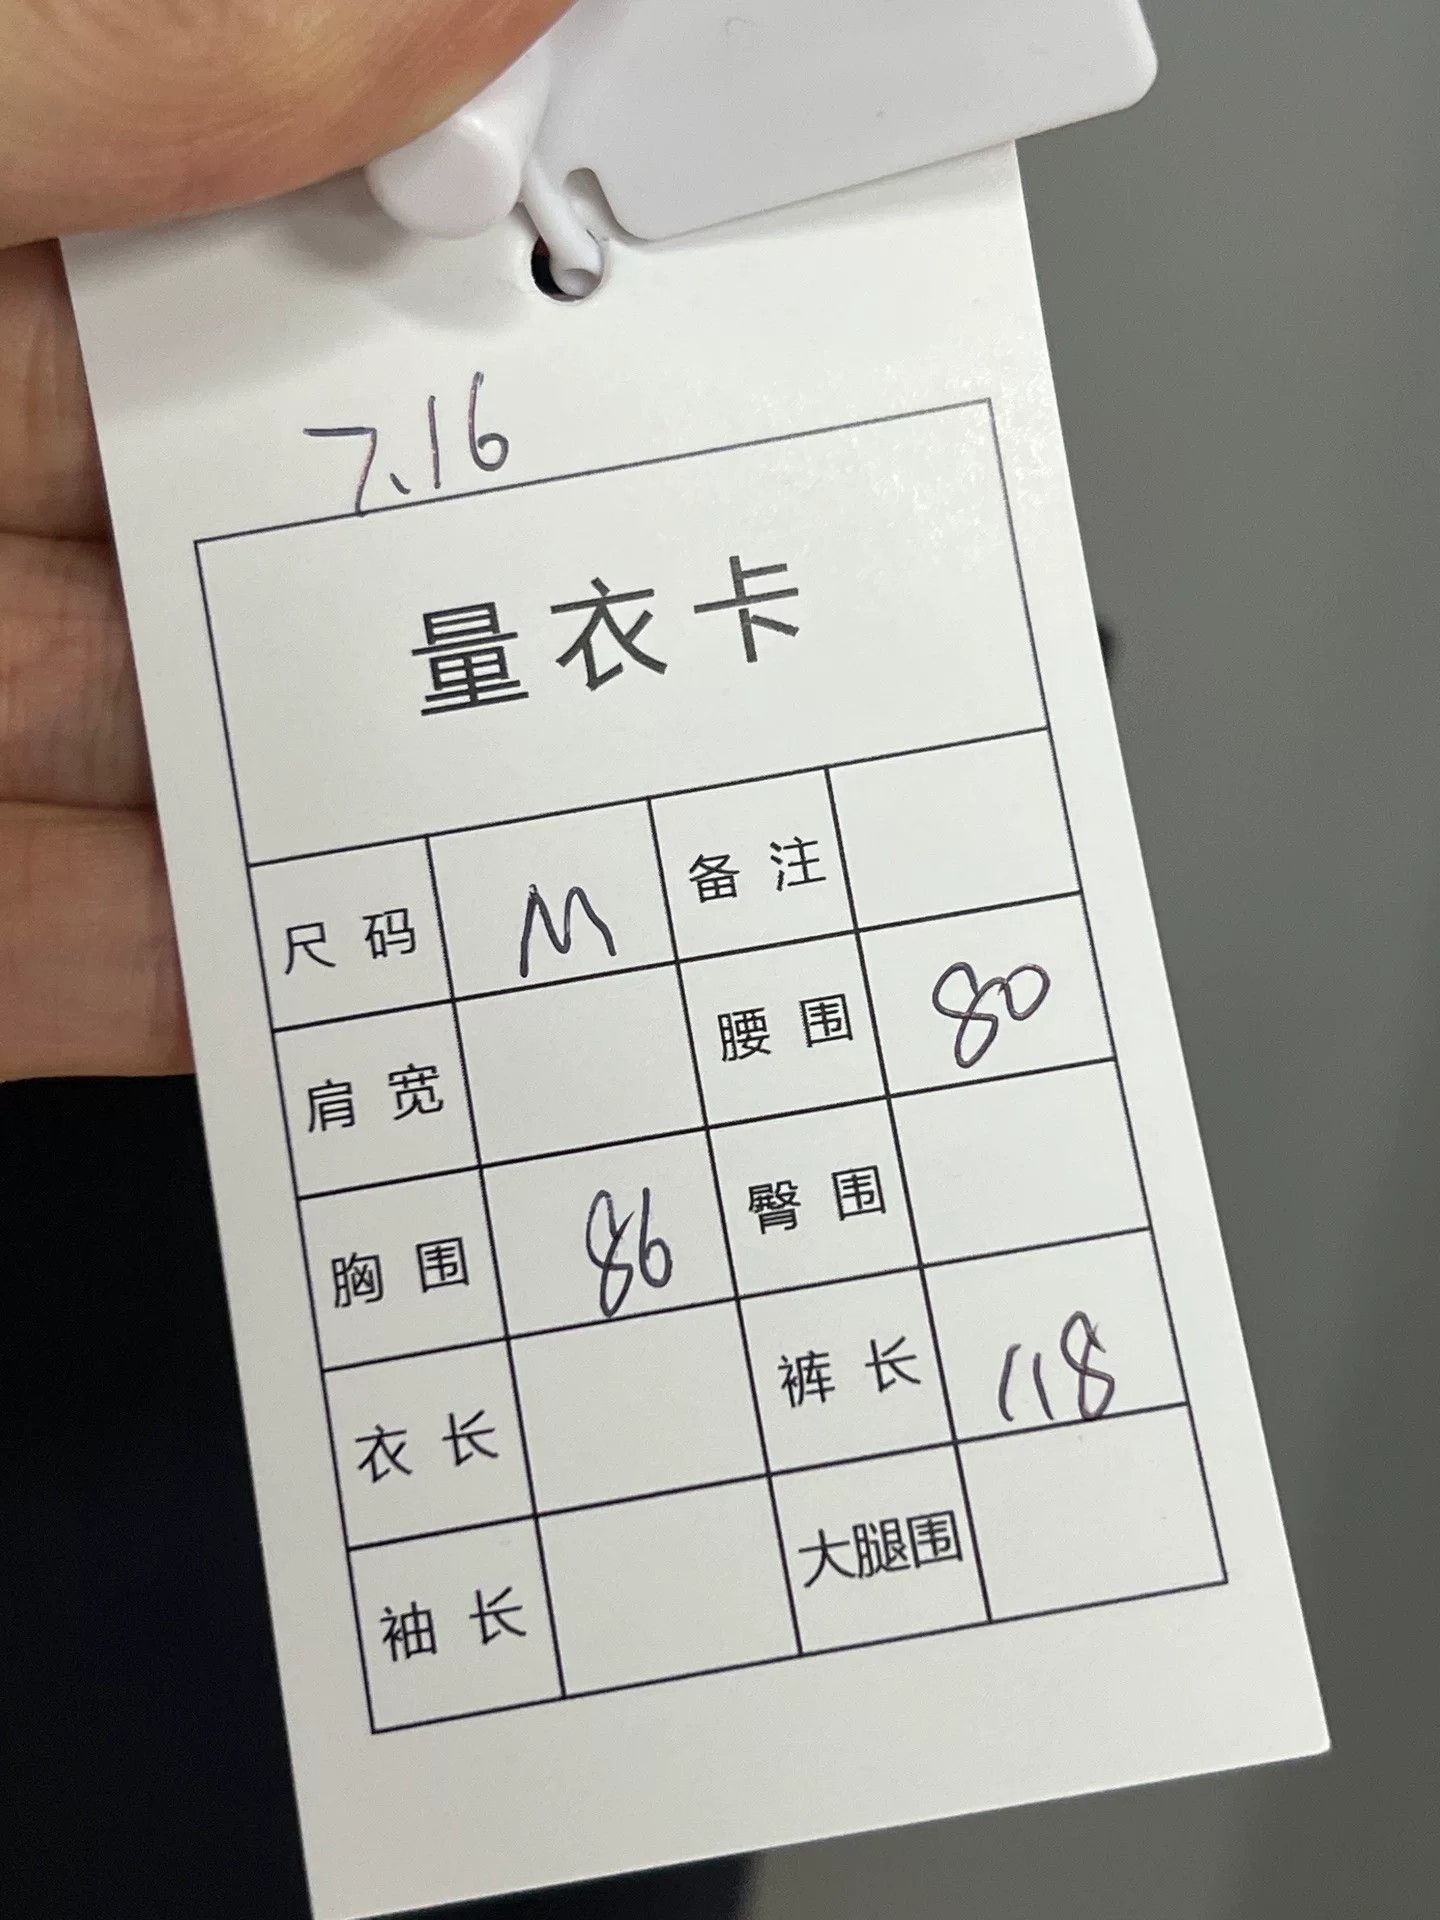 7.16
量衣卡
尺码 M 备注
肩宽 腰围 80
胸围 86 臀围
衣长 裤长 118
袖长 大腿围